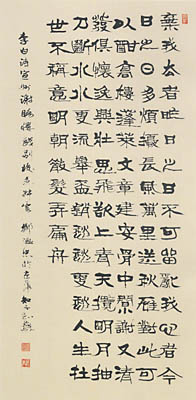 棄我去者昨日之日不可留亂我心者今
日之日多煩憂長風萬里送秋雁對此可
以酣高樓蓬萊文章建安骨中閒小謝又清
發俱懷逸興壯思飛欲上青天覽明月抽
刀斷水水更流舉杯消愁愁更愁人生在
世不稱意明朝散髮弄扁舟
李白詩宣州謝朓樓餞別校書叔雲